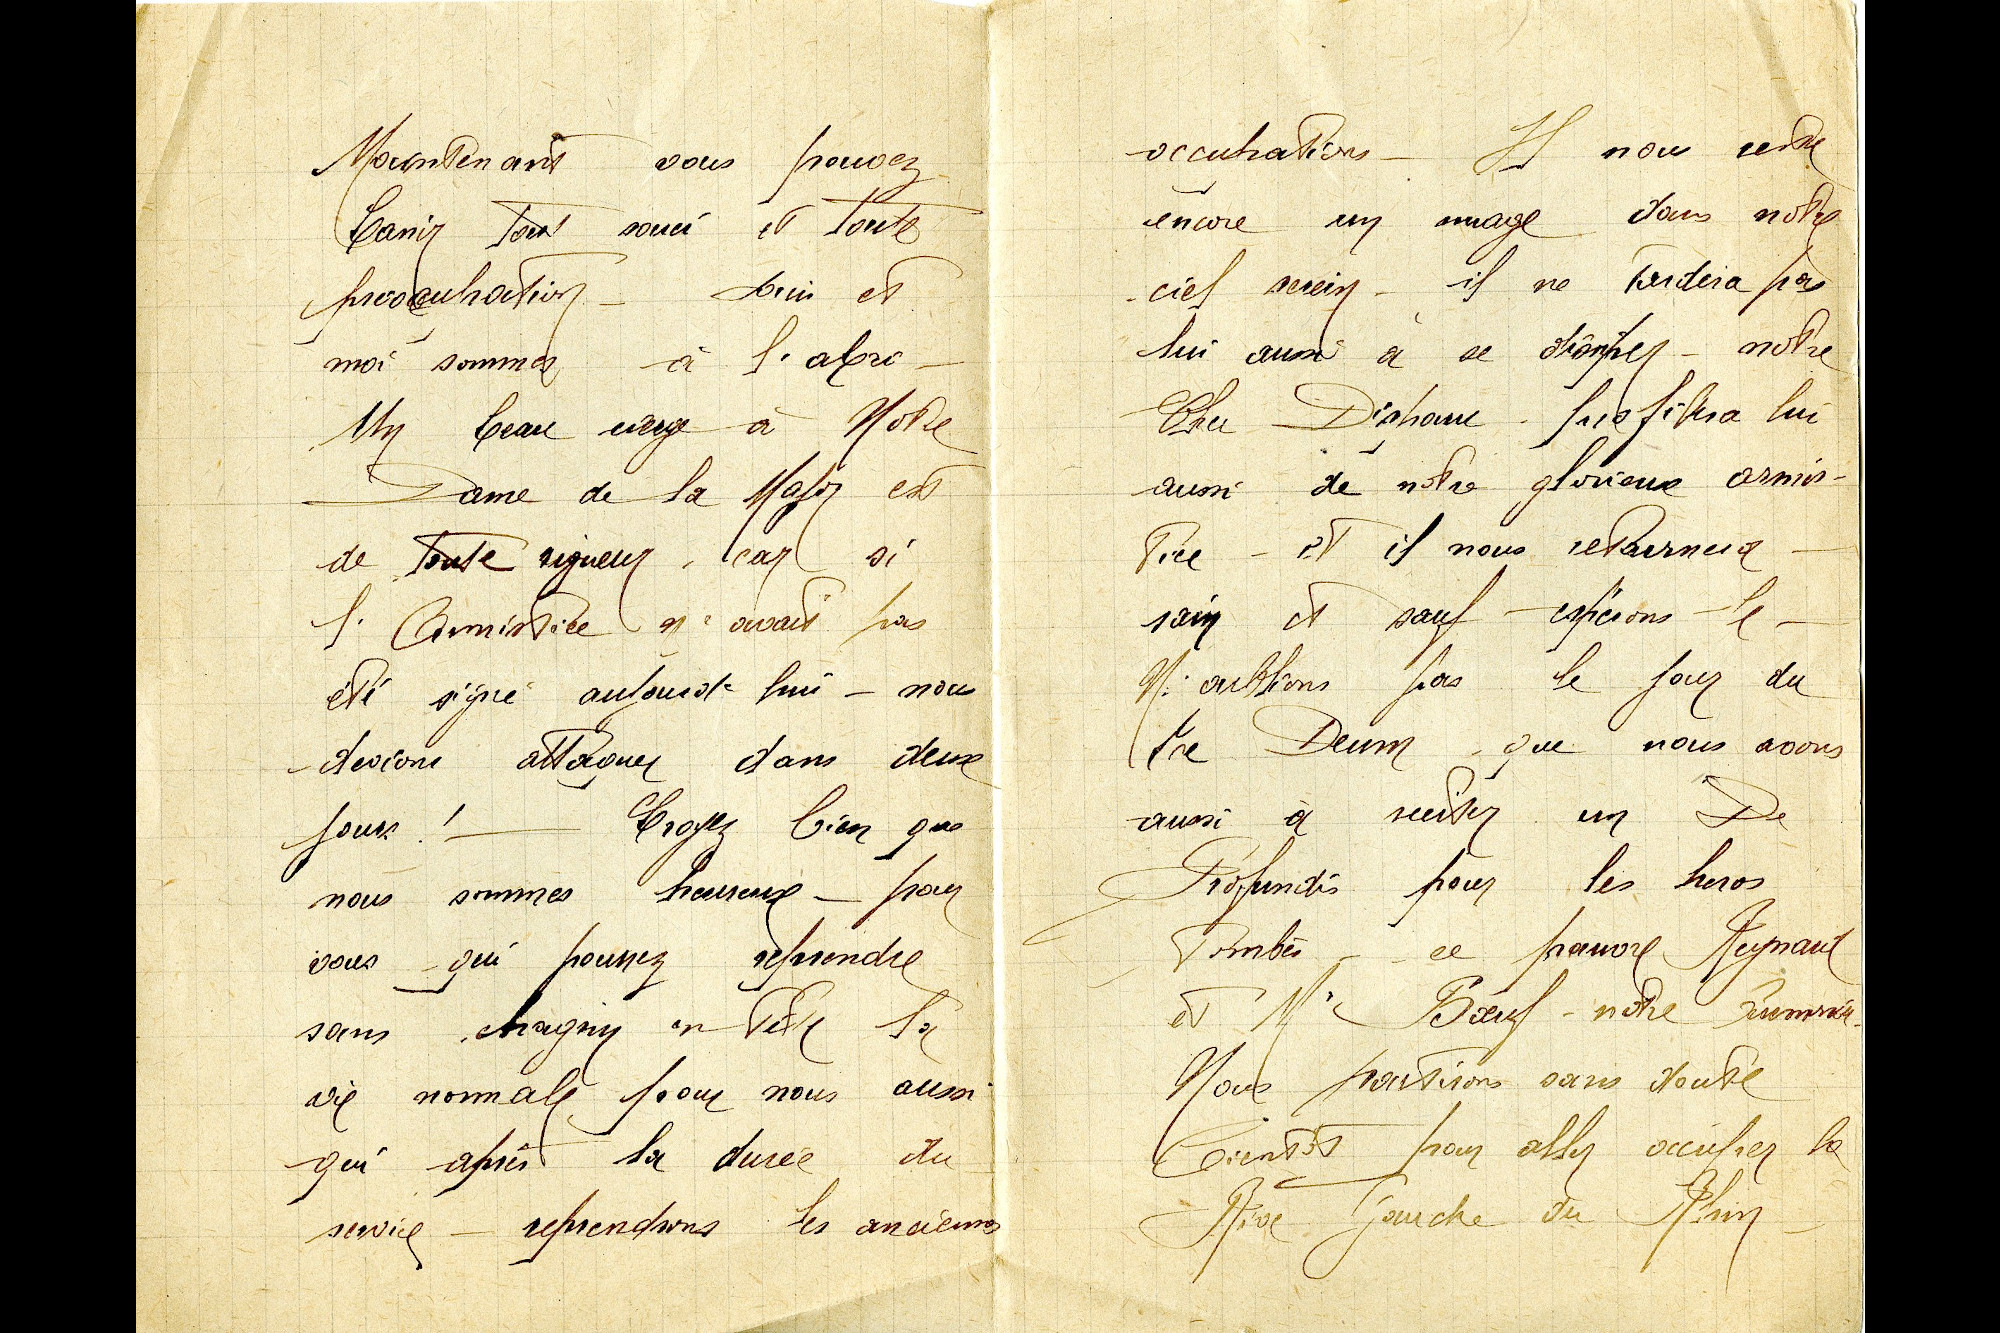 Maintenant vous pouvez
banir tout souci et toute
preoccupation — et
moi sommes à l'abri —
Un beau cierge à Notre
Dame de la Major est
de toute rigueur, car si
l'Armistice n'avait pas
été signé aujourd'hui — nous
devions attaquer dans deux
jours ! — Croyez bien que
nous sommes heureux — pour
vous qui pourrez reprendre
sans chagrin en tête la
vie normale, pour nous aussi
qui après la durée du
service — reprendrons les anciennes
occupations — Il nous reste
encore un nuage dans notre
ciel serein — il ne tardera pas
lui aussi à se dissiper — notre
Cher profitera lui
aussi de notre glorieux armis-
tice — et il nous retournera —
sain et sauf — espérons-le —
N'oublions pas le jour du
Te Deum, que nous avons
aussi à reciter un De
Profundis pour les heros
tombés — ce pauvre Reynaud
et Mr Bœuf — notre
Nous partirons sans doute
bientôt pour aller occuper la
Rive Gauche du Rhin —